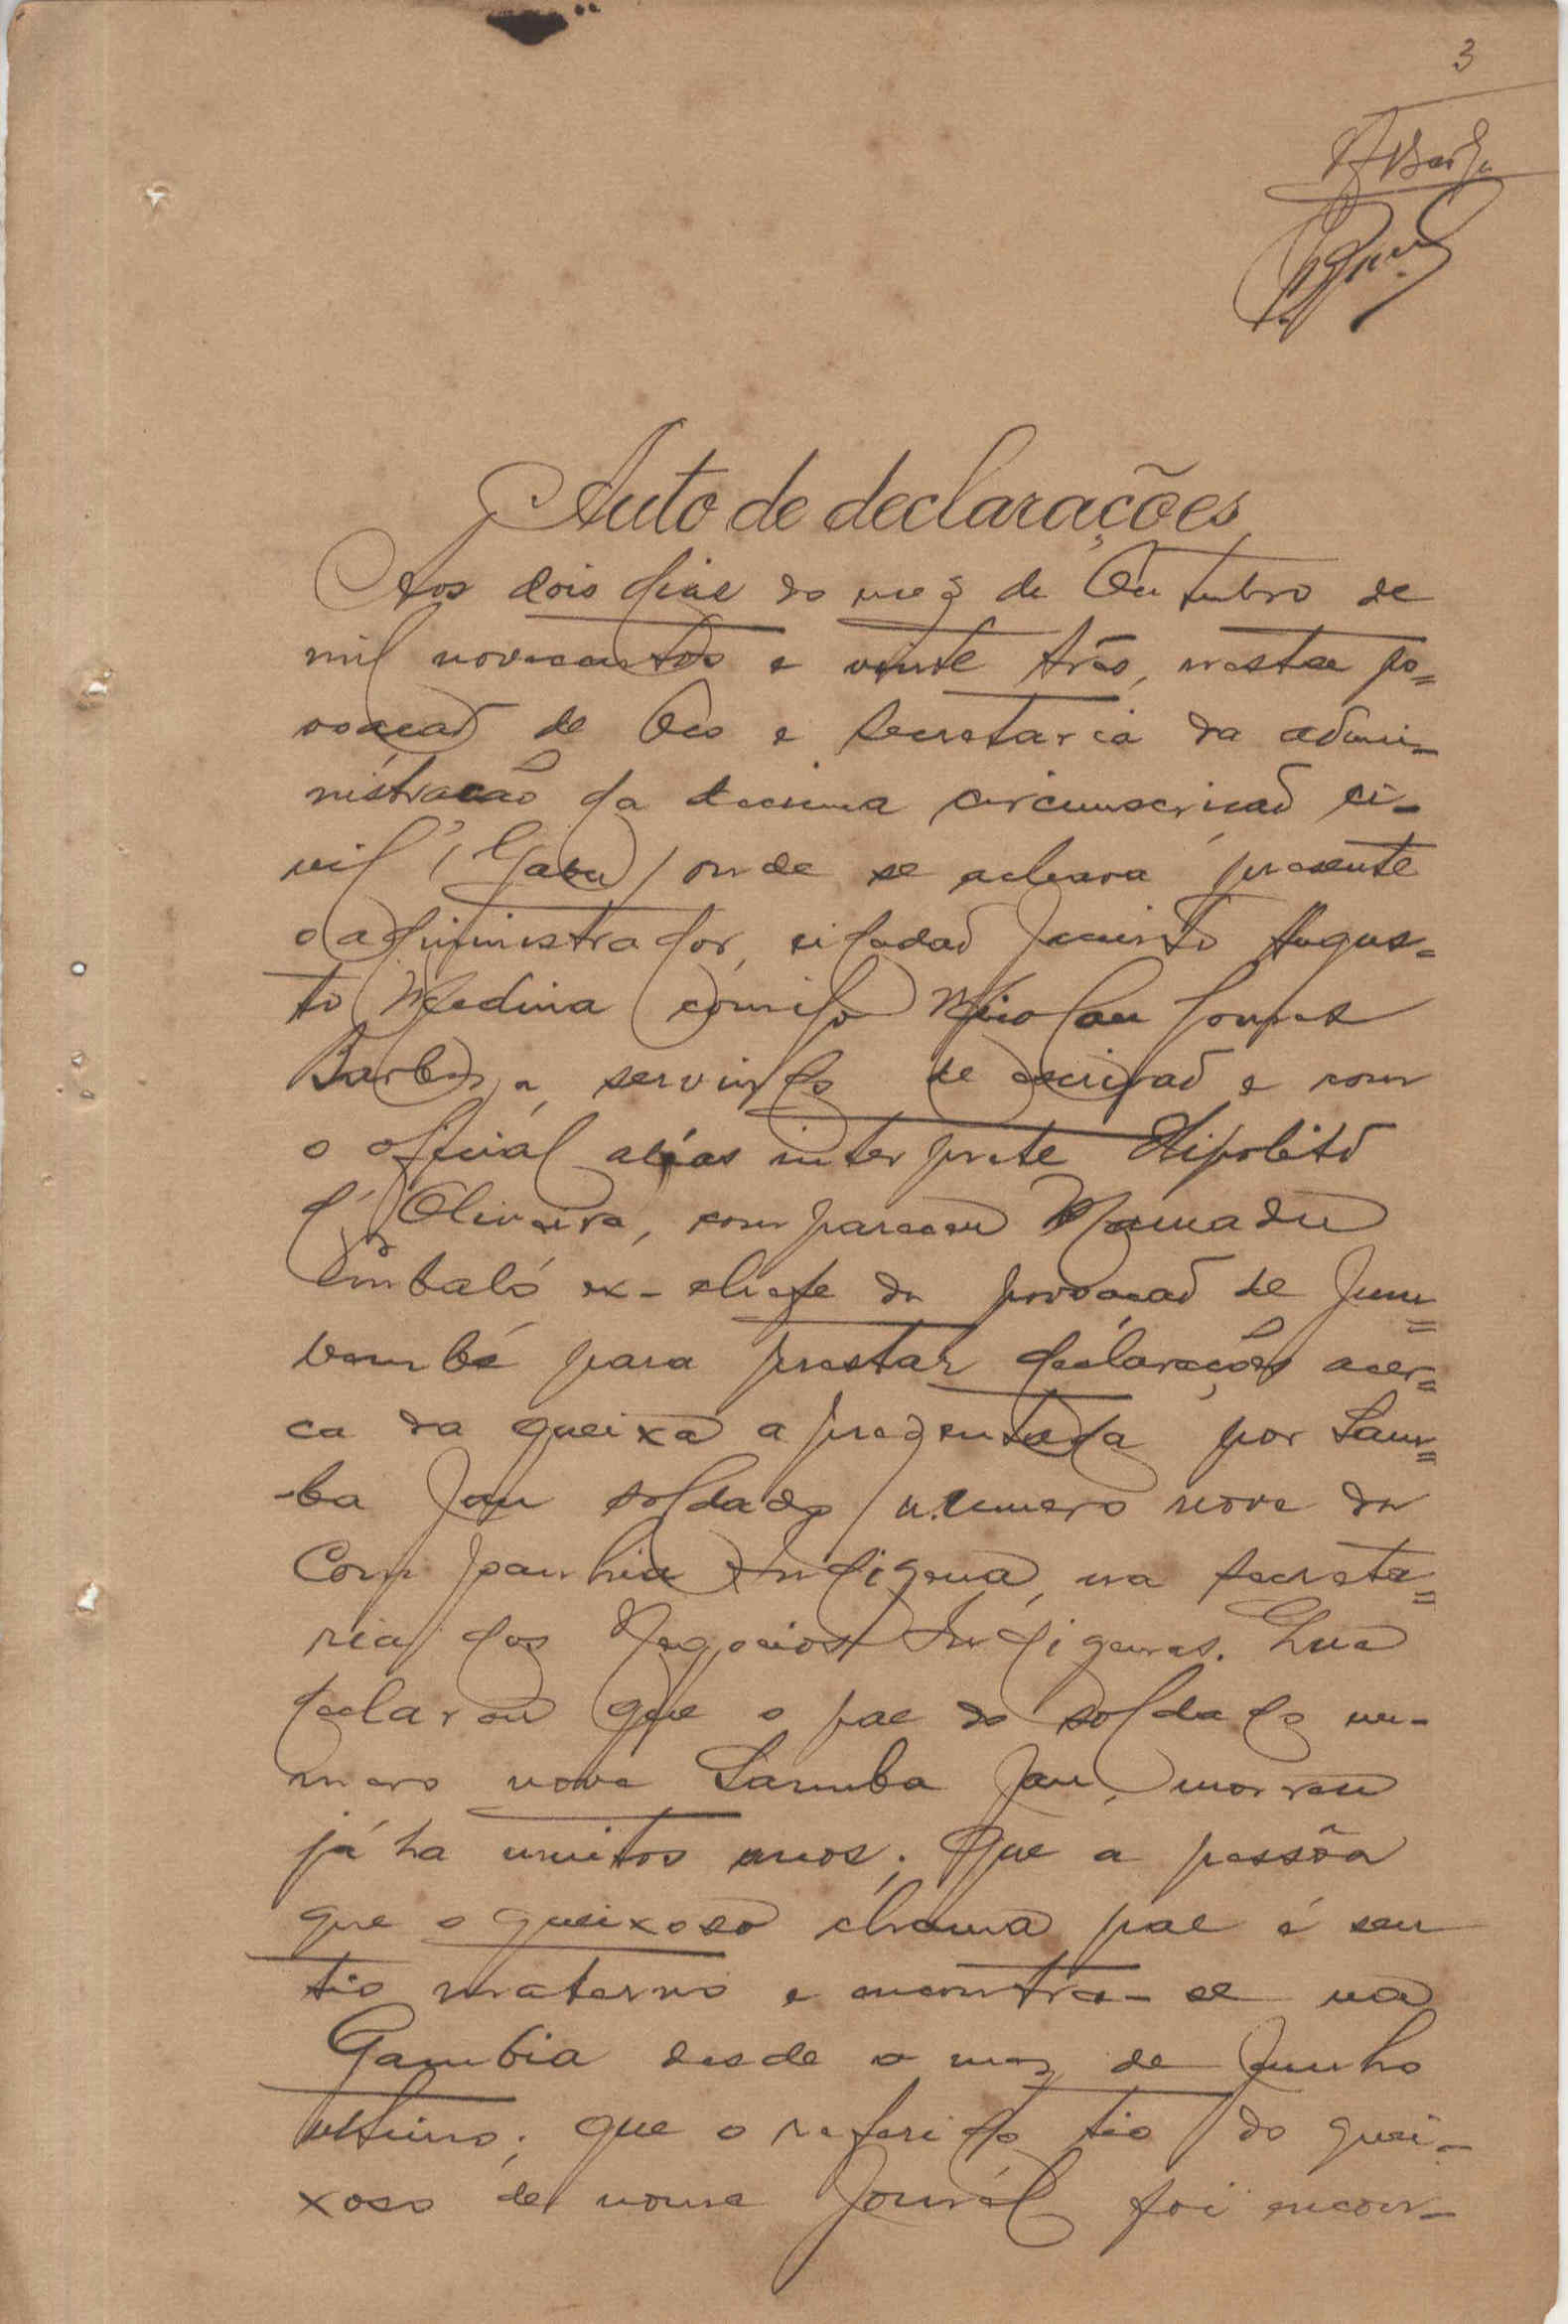 3
Auto de declarações
Aos dois dias do mez de Outubro de
mil novecentos e vinte três, nesta po=
voação de Oco e secretaria da admi-
nistração da decima circunscrição ci-
vil (Gabu) onde se achava presente
o administrador, cidadão Jacinto Augus=
to Medina comigo Nicolau Gomes
Barbosa, servindo de escrivão e com
o oficial aliás interprete Hipolito
d'Oliveira, compareceu Mamadu
Embaló ex-chefe da povoação de
para prestar declarações acer=
ca da queixa aprezentada por Sam=
-ba Jau soldado numero nove da
Companhia Indigena, na secreta=
ria dos Negocios Indigenas. Que
declarou que o pae do soldado nu-
mero nove Samba Jau, morreu
já ha muitos anos; Que a pessôa
que o queixoso chama pae é seu
tio materno e encontra-se na
Gambia desde o mez de Junho
ultimo; que o referido tio do quei-
xoso de nome foi encon-